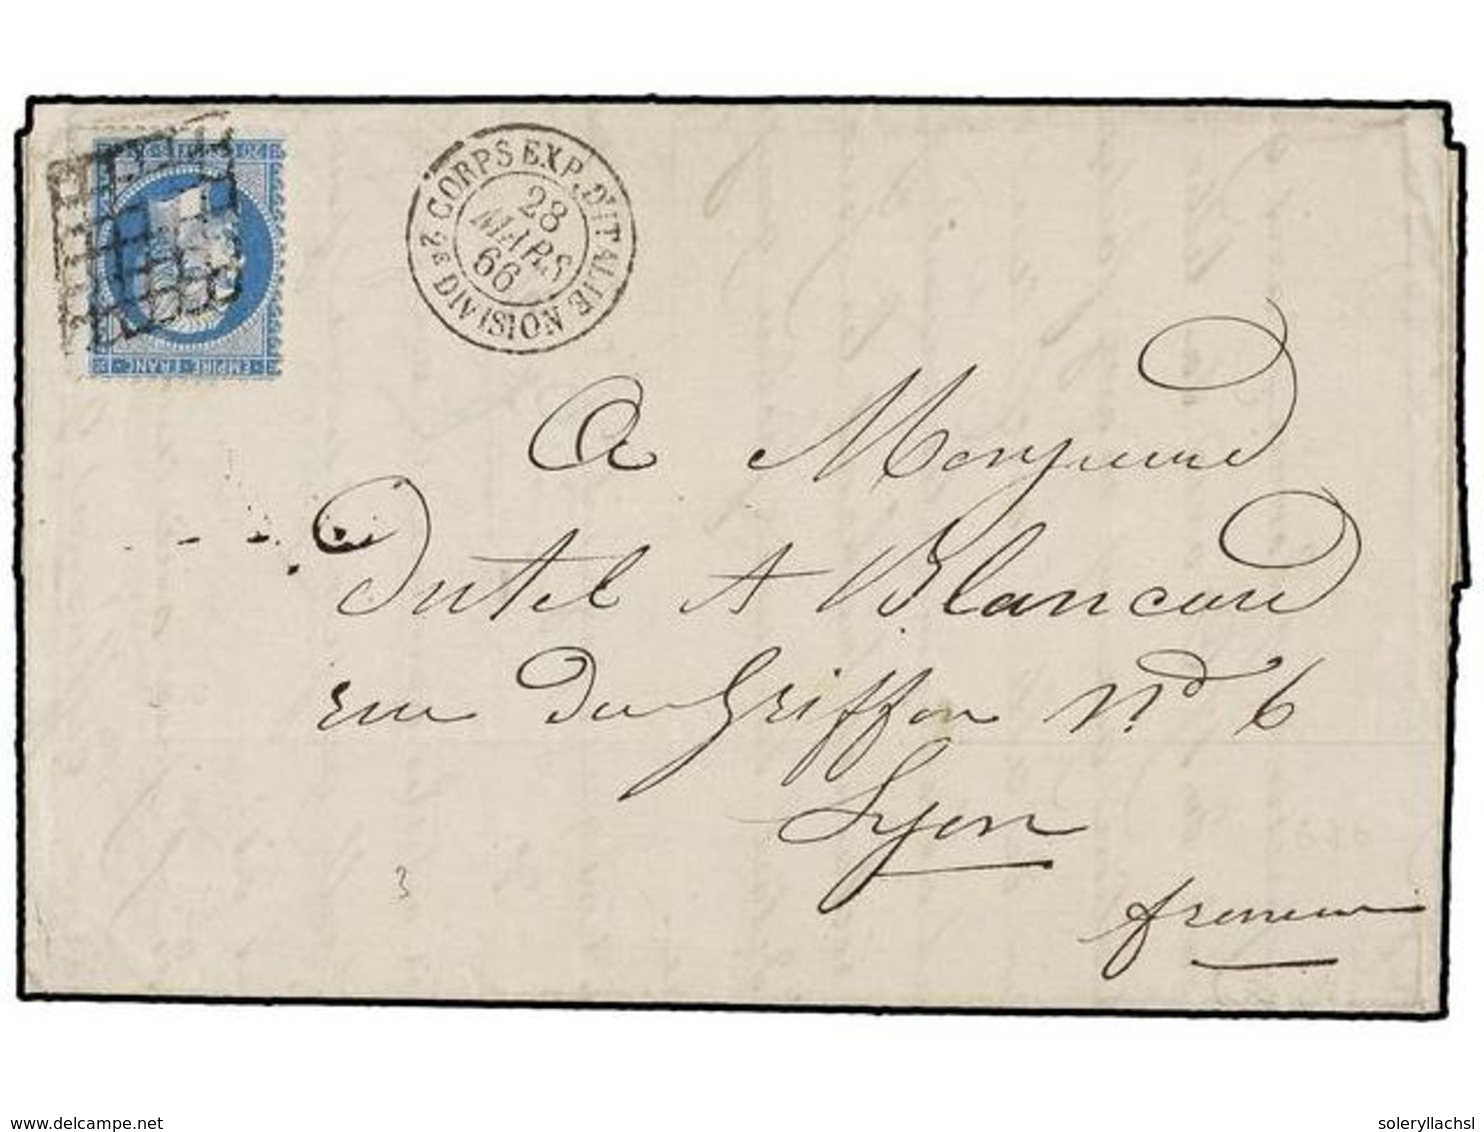 EMPIRE · FRANC ·
CORPS EXP. D'ITALIE
28
MARS
66
2e DIVISION
A Monsieur
Dutel et Blancard
rue du Griffon No 6
Lyon
3
delcampe.net
soleryllachsl